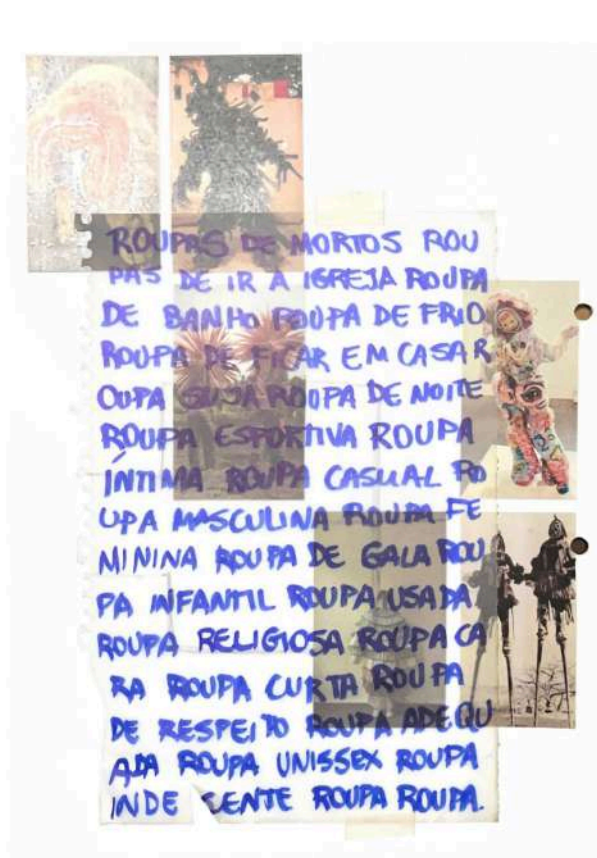 ROUPAS DE MORTOS ROU
PAS DE IR À IGREJA ROUPA
DE BANHO ROUPA DE FRIO
ROUPA DE FICAR EM CASA R
OUPA SUJA ROUPA DE NOITE
ROUPA ESPORTIVA ROUPA
ÍNTIMA ROUPA CASUAL RO
UPA MASCULINA ROUPA FE
MININA ROUPA DE GALA ROU
PA INFANTIL ROUPA USADA
ROUPA RELIGIOSA ROUPA CA
RA ROUPA CURTA ROUPA
DE RESPEITO ROUPA ADEQU
ADA ROUPA UNISSEX ROUPA
INDECENTE ROUPA ROUPA.